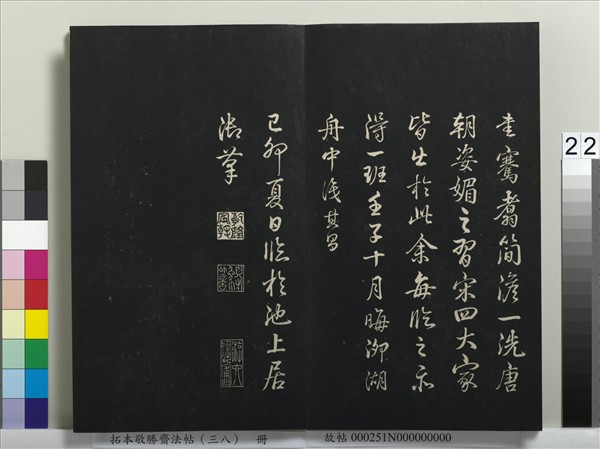 書騫翥简澹一洗唐
朝姿媚之習宋四大家
皆出於此余每臨之不
得一班壬子十月晦泖湖
舟中識其昌
己卯夏日臨於池上居
御筆
拓本敬勝齋法帖(三八) 冊
故帖 000251N000000000
22